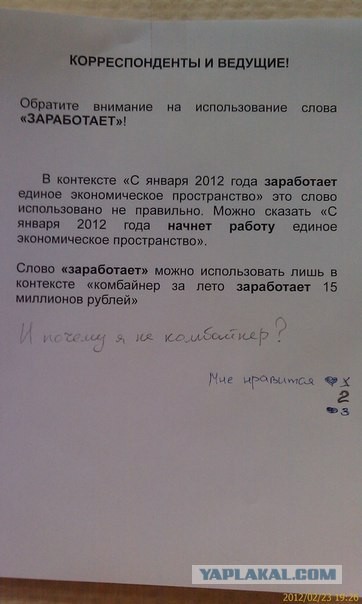 КОРРЕСПОНДЕНТЫ И ВЕДУЩИЕ!
Обратите внимание на использование слова
«ЗАРАБОТАЕТ»!
В контексте «С января 2012 года заработает
единое экономическое пространство» это слово
использовано не правильно. Можно сказать «С
января 2012 года начнет работу единое
экономическое пространство».
Слово «заработает» можно использовать лишь в
контексте «комбайнер за лето заработает 15
миллионов рублей»
И почему я не комбайнер?
Мне нравится ♥ X
2
3
YAPLAKAL.COM
2012/02/23 19:26